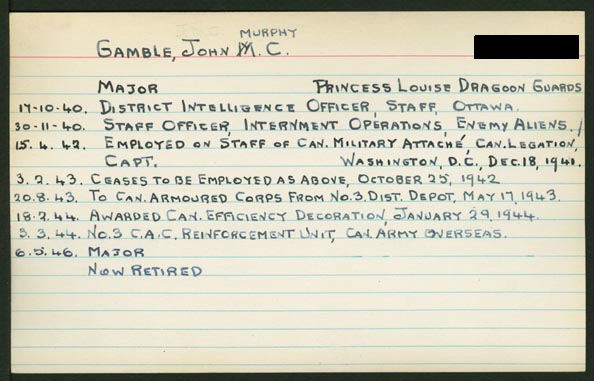 MURPHY
GAMBLE, JOHN M. C.
MAJOR PRINCESS LOUISE DRAGOON GUARDS
17-10-40. DISTRICT INTELLIGENCE OFFICER, STAFF, OTTAWA.
30-11-40. STAFF OFFICER, INTERNMENT OPERATIONS, ENEMY ALIENS.
15.4.42. EMPLOYED ON STAFF OF CAN. MILITARY ATTACHÉ, CAN. LEGATION,
CAPT. WASHINGTON, D.C., DEC. 18, 1941.
3.2.43. CEASES TO BE EMPLOYED AS ABOVE, OCTOBER 25, 1942
20.8.43. TO CAN. ARMOURED CORPS FROM NO. 3. DIST. DEPOT, MAY 17, 1943.
18.2.44. AWARDED CAN. EFFICIENCY DECORATION, JANUARY 29, 1944.
3.3.44. NO. 3 C.A.C. REINFORCEMENT UNIT, CAN. ARMY OVERSEAS.
6.5.46. MAJOR
NOW RETIRED